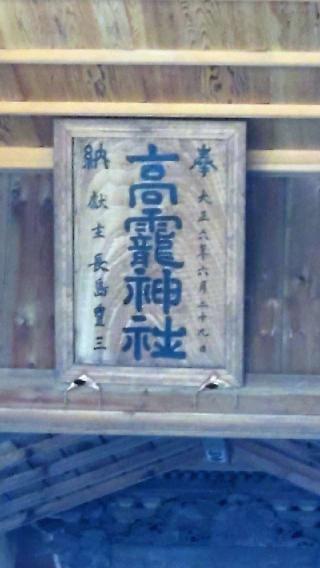 奉
大正六年六月二十九日
高龗神社
納
献主 長島豊三